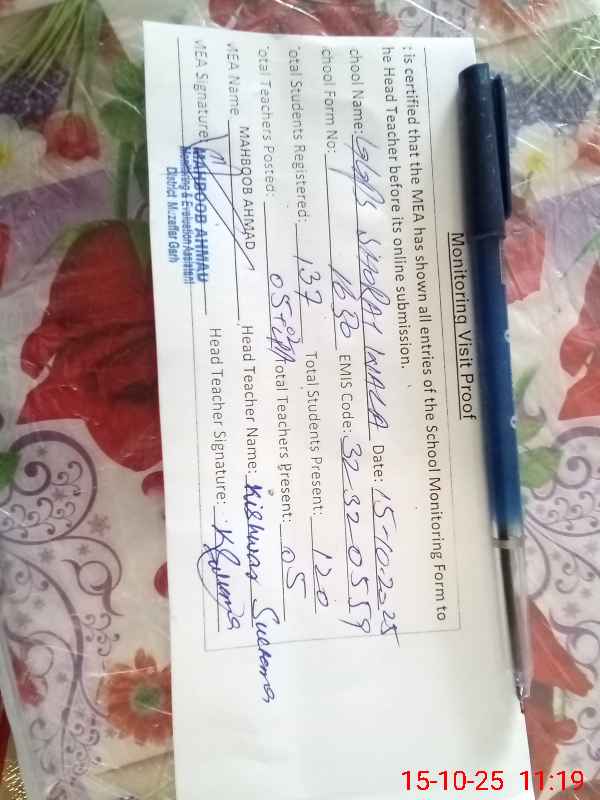 Monitoring Visit Proof
t is certified that the MEA has shown all entries of the School Monitoring Form to
he Head Teacher before its online submission.
chool Name: SHORAT WALA Date: 15-10-2025
chool Form No: 1630 EMIS Code: 32320559
otal Students Registered: 137 Total Students Present: 120
otal Teachers Posted: 05+ otal Teachers Present: 05
MEA Name MAHBOOB AHMAD Head Teacher Name: Kishwar
MEA Signature Head Teacher Signature:
MAHBOOB AHMAD
Monitoring & Evaluation Assistant
District Muzaffar Garh
15-10-25 11:19